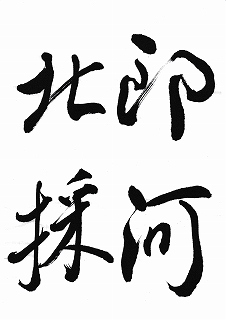 郎河
北採